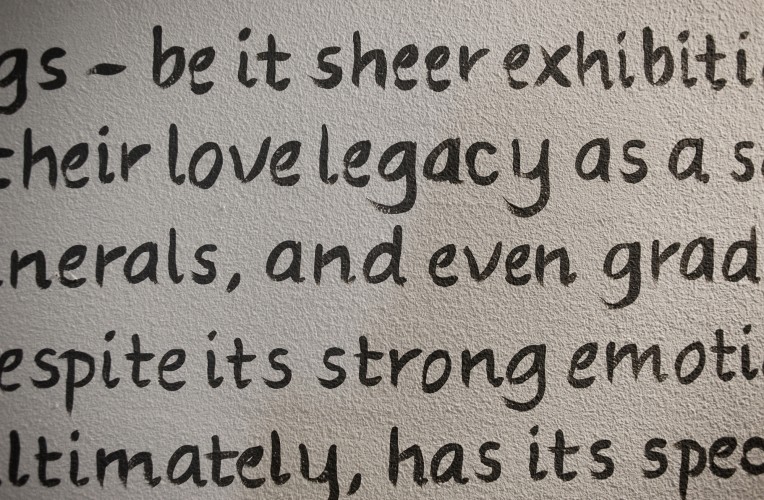 gs - be it sheer exhibiti
their love legacy as a s
nerals, and even grad
espite its strong emoti
ltimately, has its spec